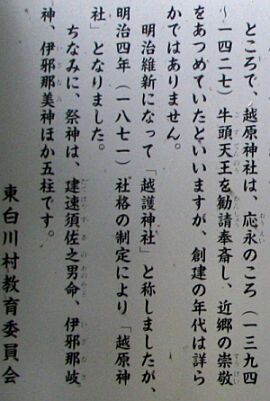 ところで、越原神社は、応永のころ（一三九四
～一四二七）牛頭天王を勧請奉斎し、近郷の崇敬
をあつめていたといいますが、創建の年代は詳ら
かではありません。
明治維新になって「越護神社」と称しましたが、
明治四年（一八七一）社格の制定により「越原神
社」となりました。
ちなみに、祭神は、建速須佐之男命、伊邪那岐
神、伊邪那美神ほか五柱です。
東白川村教育委員会